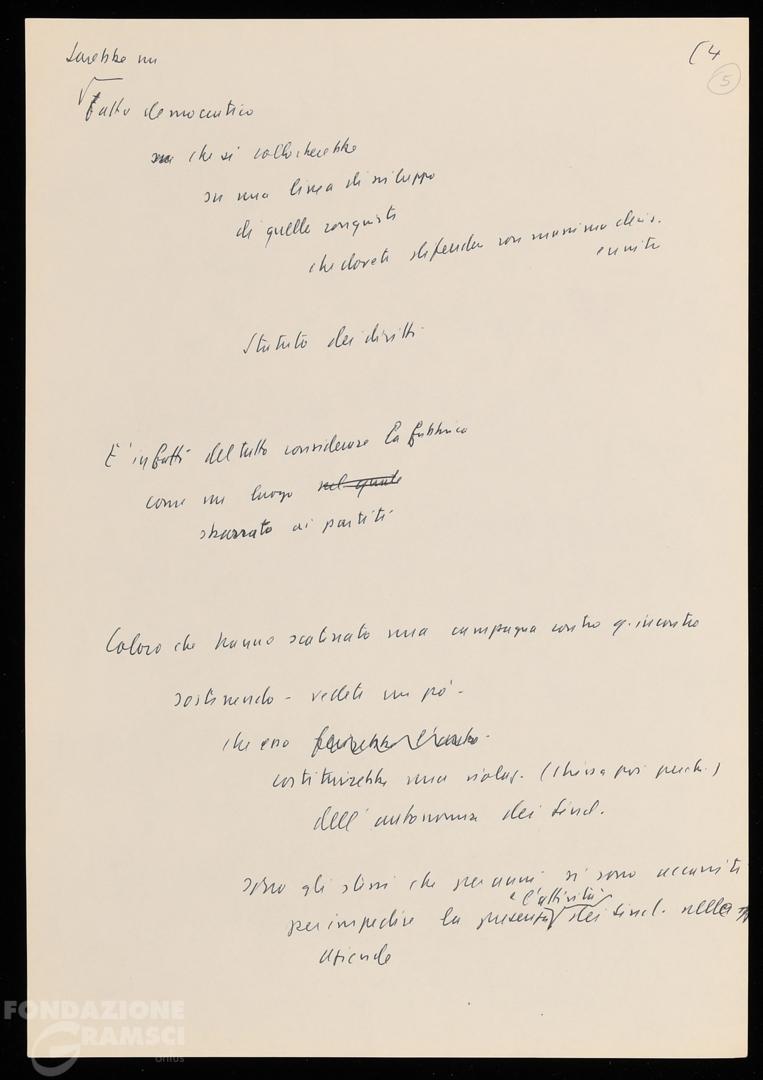 (4
5
Sarebbe un
fatto democratico
che si collocherebbe
su una linea di sviluppo
di quelle conquiste
che dovete difendere con massima decis.
e unità
Statuto dei diritti
E' infatti del tutto considerare la fabbrica
come un luogo nel quale
sbarrato ai partiti
Coloro che hanno scatenato una campagna contro q. incontro
sostenendo - vedete un pò -
che esso
costituirebbe una violaz. (chissà poi perché)
dell'autonomia dei sind.
sono gli stessi che per anni si sono accaniti
e l'attività
per impedire la presenza dei sind. nelle
aziende
FONDAZIONE
GRAMSCI
onlus